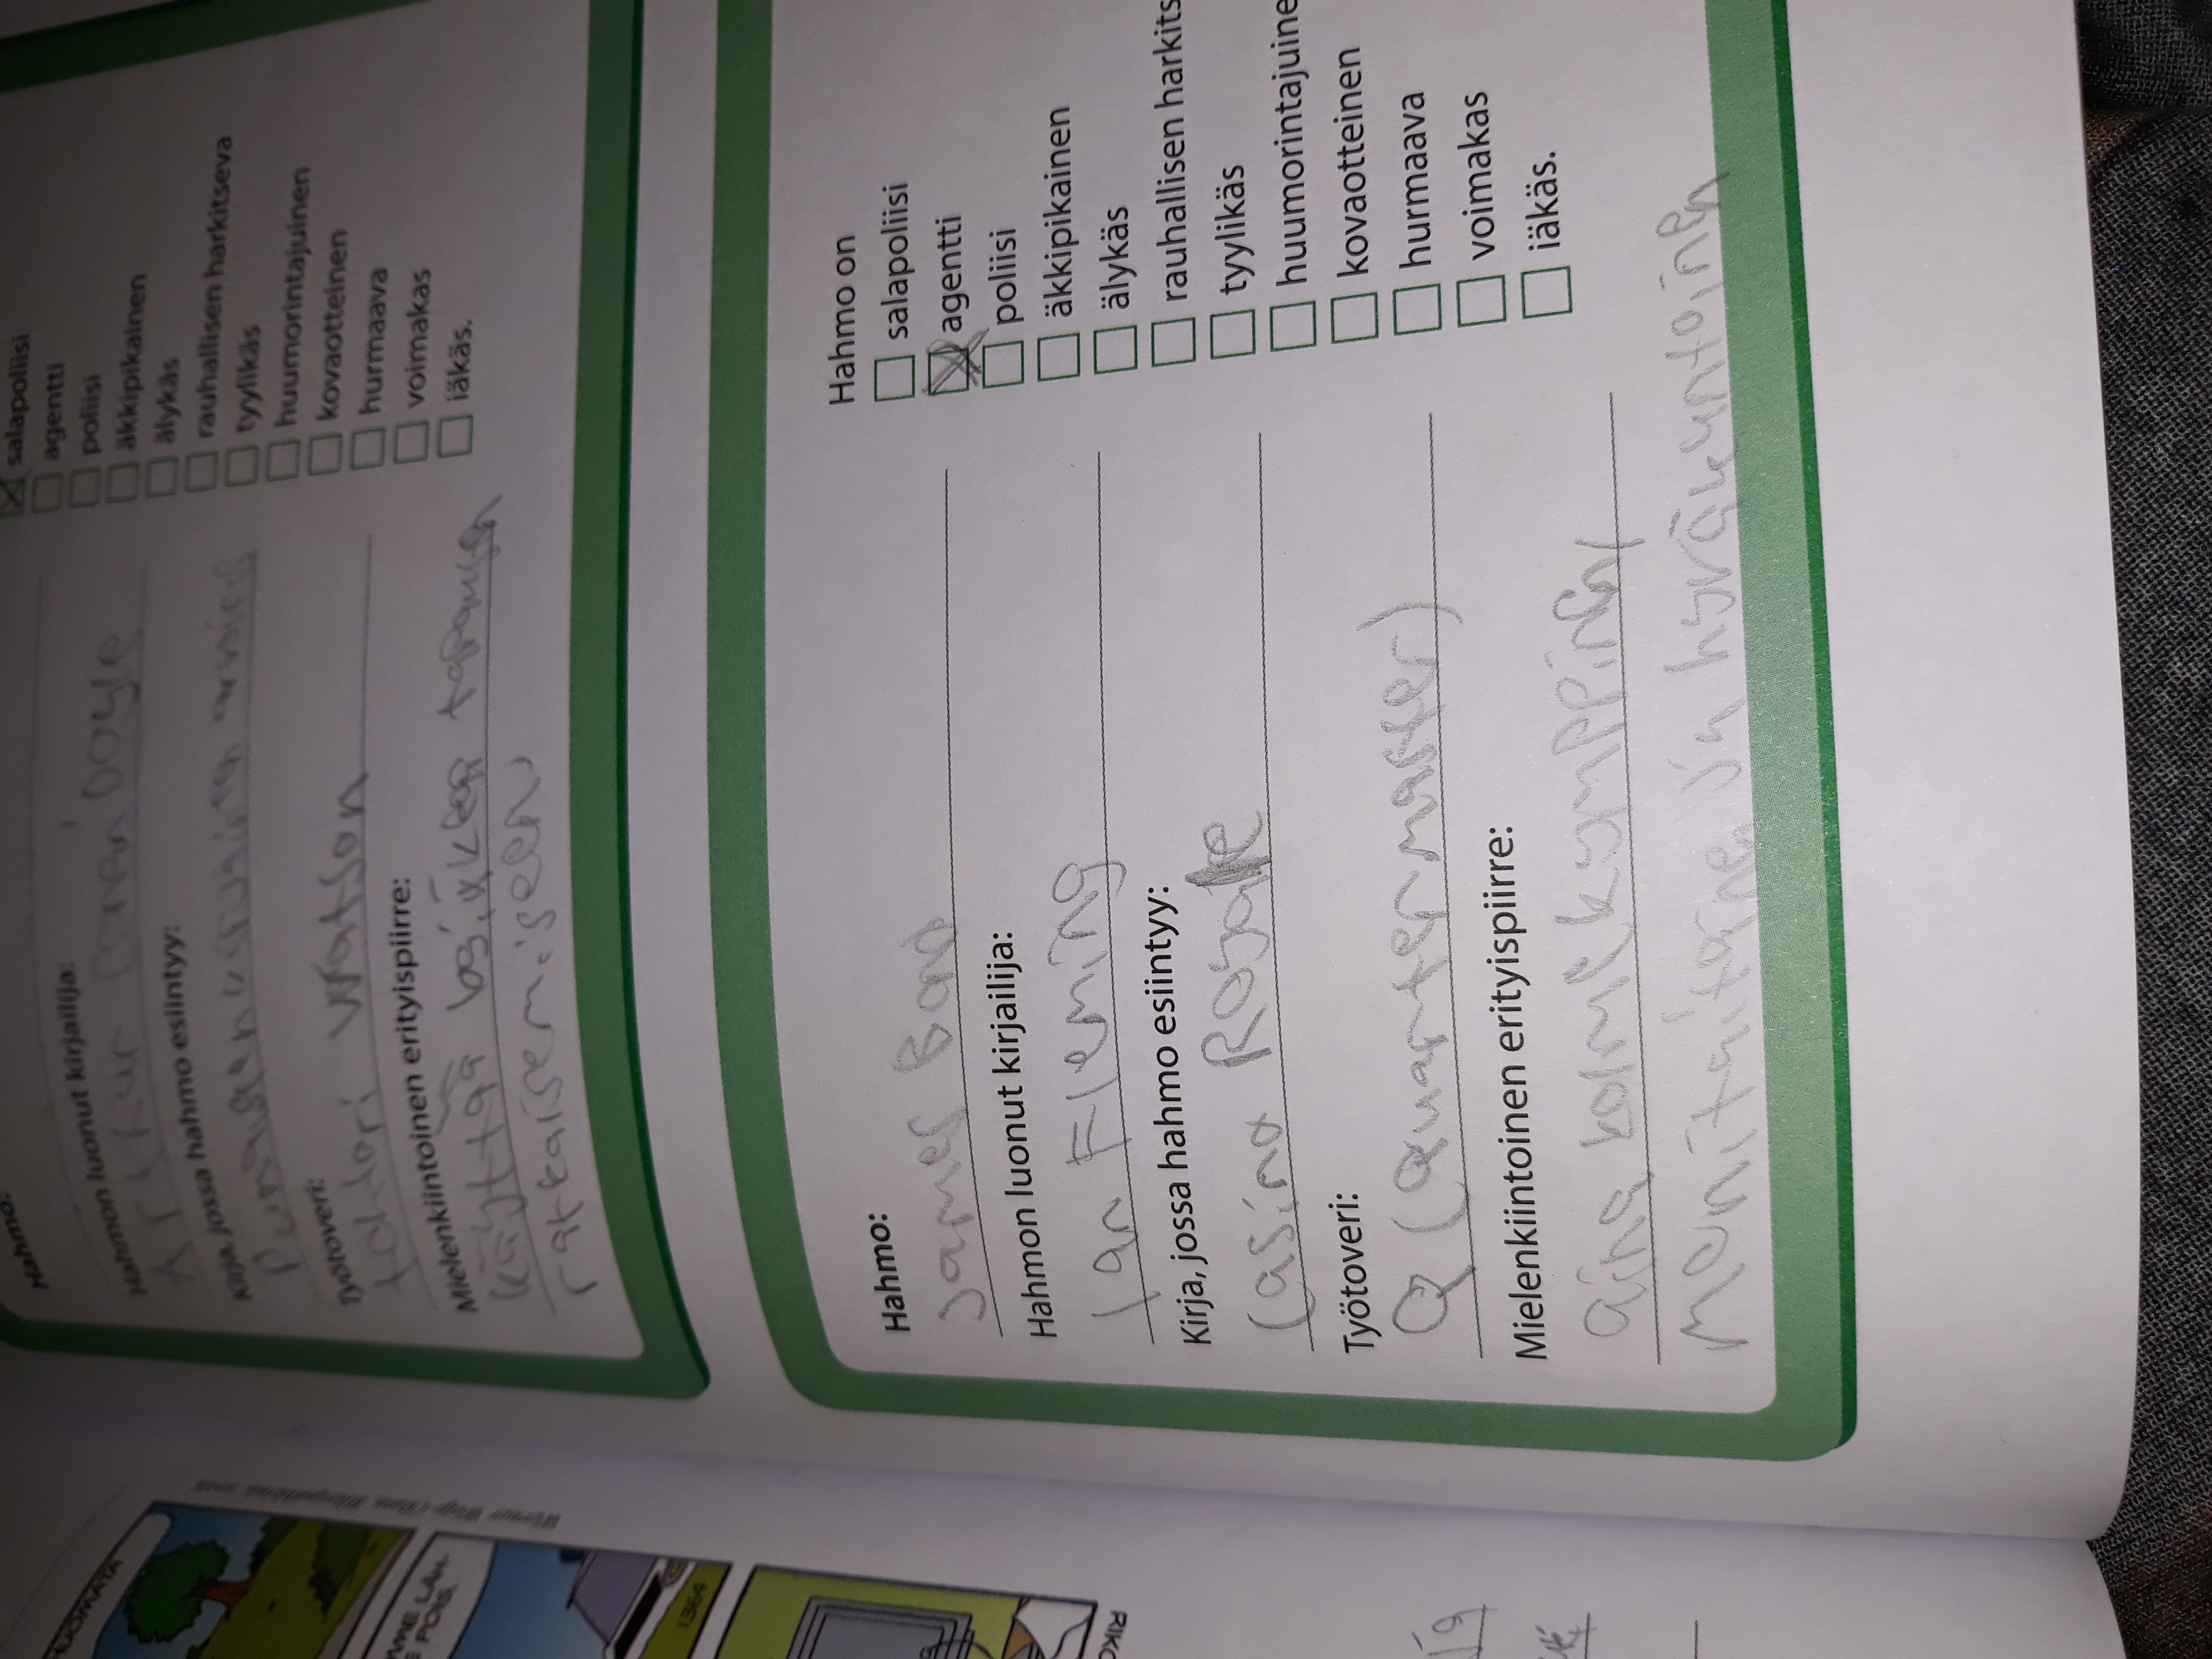 Hahmo:
Hahmon luonut kirjailija:
Arthur Conan Doyle
Kirja, jossa hahmo esiintyy:
Työtoveri:
tohtori Watson
Mielenkiintoinen erityispiirre:
käyttää
ratkaisemiseen
salapoliisi
agentti
poliisi
äkkipikainen
älykäs
rauhallisen harkitseva
tyylikäs
huumorintajuinen
kovaotteinen
hurmaava
voimakas
iäkäs.
Hahmo:
James Bond
Hahmon luonut kirjailija:
Ian Fleming
Kirja, jossa hahmo esiintyy:
Casino Royale
Työtoveri:
Q (Quartermaster)
Mielenkiintoinen erityispiirre:
aina
monitaitoinen ja hyväkuntoinen
Hahmo on
salapoliisi
agentti
poliisi
äkkipikainen
älykäs
rauhallisen harkits
tyylikäs
huumorintajuine
kovaotteinen
hurmaava
voimakas
iäkäs.
HUOMATA
POIS.
1364
RIKO